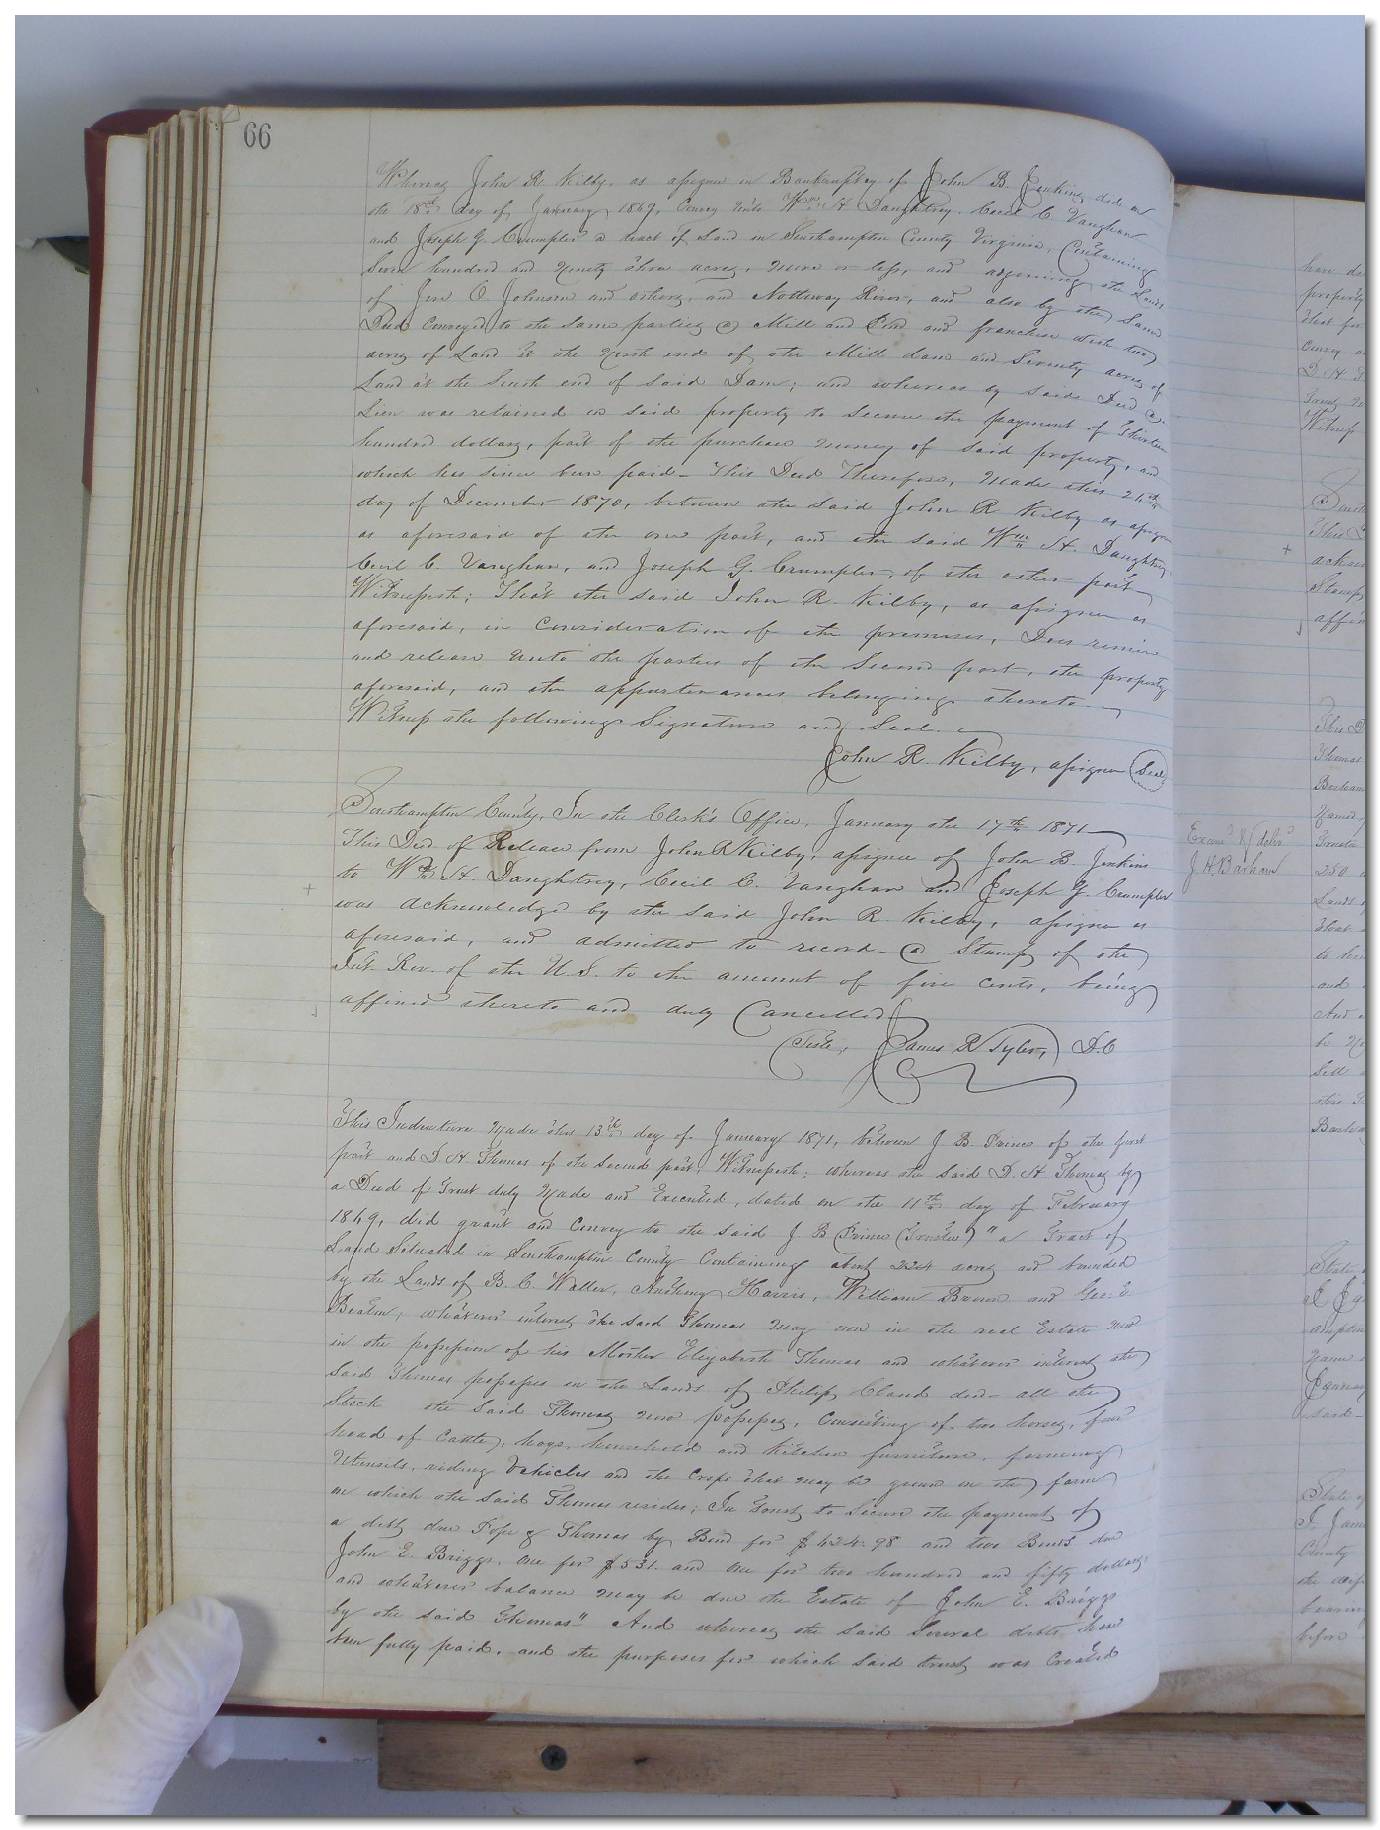 66
Whereas John R Kilby, as assignee in Bankruptcy of John B. Jenkins, did on
the 18th day of January, 1869, Convey unto Wm H Daughtrey, Cecil C Vaughan
and Joseph G. Crumpler a tract of Land in Southampton County Virginia, Containing
Seven hundred and Ninety three acres, more or less, and adjoining the Lands
of Jere O Johnson and others, and Nottoway River, and also by the Same
Deed Conveyed to the Same parties a Mill and Pond and franchise with two
acres of Land at the North end of the Mill dam and Seventy acres of
Land at the South end of Said Dam; and whereas by Said Deed a
Lien was retained on said property to Secure the payment of Thirteen
hundred dollars, part of the purchase money of said property, and
which has since been paid - This Deed Therefore, Made this 24th
day of December 1870, between the said John R Kilby as assignee
as aforesaid of the one part, and the said Wm H. Daughtrey
Cecil C. Vaughan, and Joseph G. Crumpler, of the other part
Witnesseth; That the said John R. Kilby, as assignee as
aforesaid, in Consideration of the premises, Does remise
and release unto the parties of the Second part, the property
aforesaid, and the appurtenances belonging thereto
Witness the following Signature and Seal.
John R. Kilby, assignee (Seal)
Southampton County, In the Clerk's Office, January the 17th 1871
This Deed of Release from John R Kilby, assignee of John B. Jenkins
to Wm H. Daughtrey, Cecil C. Vaughan and Joseph G. Crumpler
was acknowledged by the said John R. Kilby, assignee as
aforesaid, and admitted to record - a Stamp of the
Int. Rev. of the U.S. to the amount of five cents, being
affixed thereto and duly Cancelled
Teste, James R Tyler, D.C
This Indenture Made this 13th day of January 1871, between J B. Prince of the first
part and D H Thomas of the Second part, Witnesseth; whereas the said D. H Thomas by
a Deed of Trust duly Made and Executed, dated on the 11th day of February
1869, did grant and Convey to the said J B Prince (Trustee) "a Tract of
Land Situated in Southampton County Containing about 224 acres and bounded
by the Lands of B. C. Waller, Anthony Harris, William Brown and Geo. E
Beaton, whatever interest the said Thomas may own in the real Estate now
in the possession of his Mother Elizabeth Thomas and whatever interest the
Said Thomas possesses in the Lands of Philip Claud dec - all the
Stock the Said Thomas now possesses, Consisting of two horses, four
head of Cattle, hogs, household and kitchen furniture, farming
Utensils, riding Vehicles and the Crops that may be grown on the farm
on which the said Thomas resides; In Trust to Secure the payment of
a debt due Pope & Thomas by Bond for $424.98 and two Bonds due
John E. Briggs, one for $534. and one for two hundred and fifty dollars,
and whatever balance may be due the Estate of John E. Briggs
by the said Thomas" And whereas the said Several debts have
been fully paid, and the purposes for which said trust was Created
Exam & delv
J. H. Barham